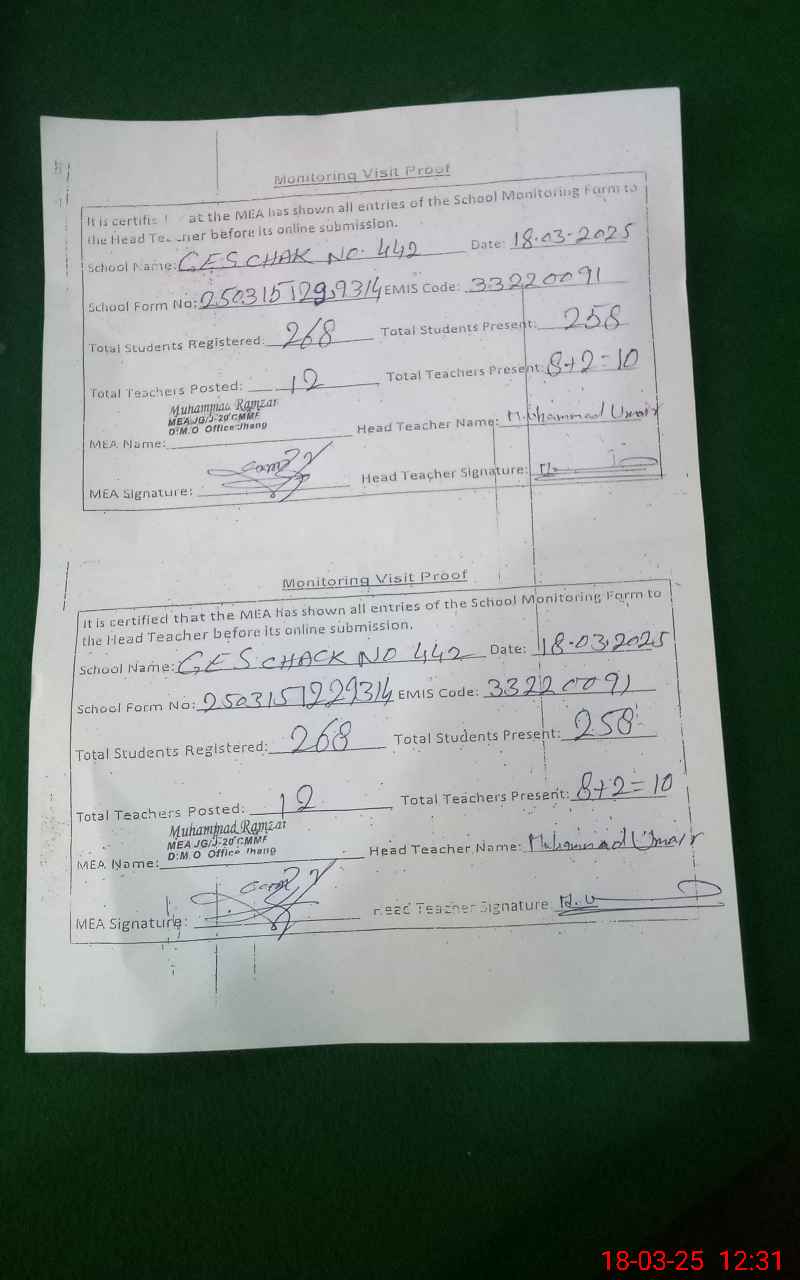 Monitoring Visit Proof
It is certified at the MEA has shown all entries of the School Monitoring Form to
the Head Teacher before its online submission.
School Name: GES CHAK NO. 442 Date: 18.03-2025
School Form No: EMIS Code: 33220091
Total Students Registered: 268 Total Students Present: 258
Total Teachers Posted: 12 Total Teachers Present: 8+2=10
Muhammad Ramzan
MEA JG/J-20 CMMF
D.M.O Office Jhang
MEA Name: Head Teacher Name: Muhammad Umair
MEA Signature: Head Teacher Signature:
Monitoring Visit Proof
It is certified that the MEA has shown all entries of the School Monitoring Form to
the Head Teacher before its online submission.
School Name: GES CHACK NO 442 Date: 18.03.2025
School Form No: 2503151229314 EMIS Code: 33220091
Total Students Registered: 268 Total Students Present: 258
Total Teachers Posted: 12 Total Teachers Present: 8+2=10
Muhammad Ramzan
MEA JG/J-20 CMMF
D.M.O Office Jhang
MEA Name: Head Teacher Name: Muhammad Umair
MEA Signature: Head Teacher Signature: M.U
18-03-25 12:31